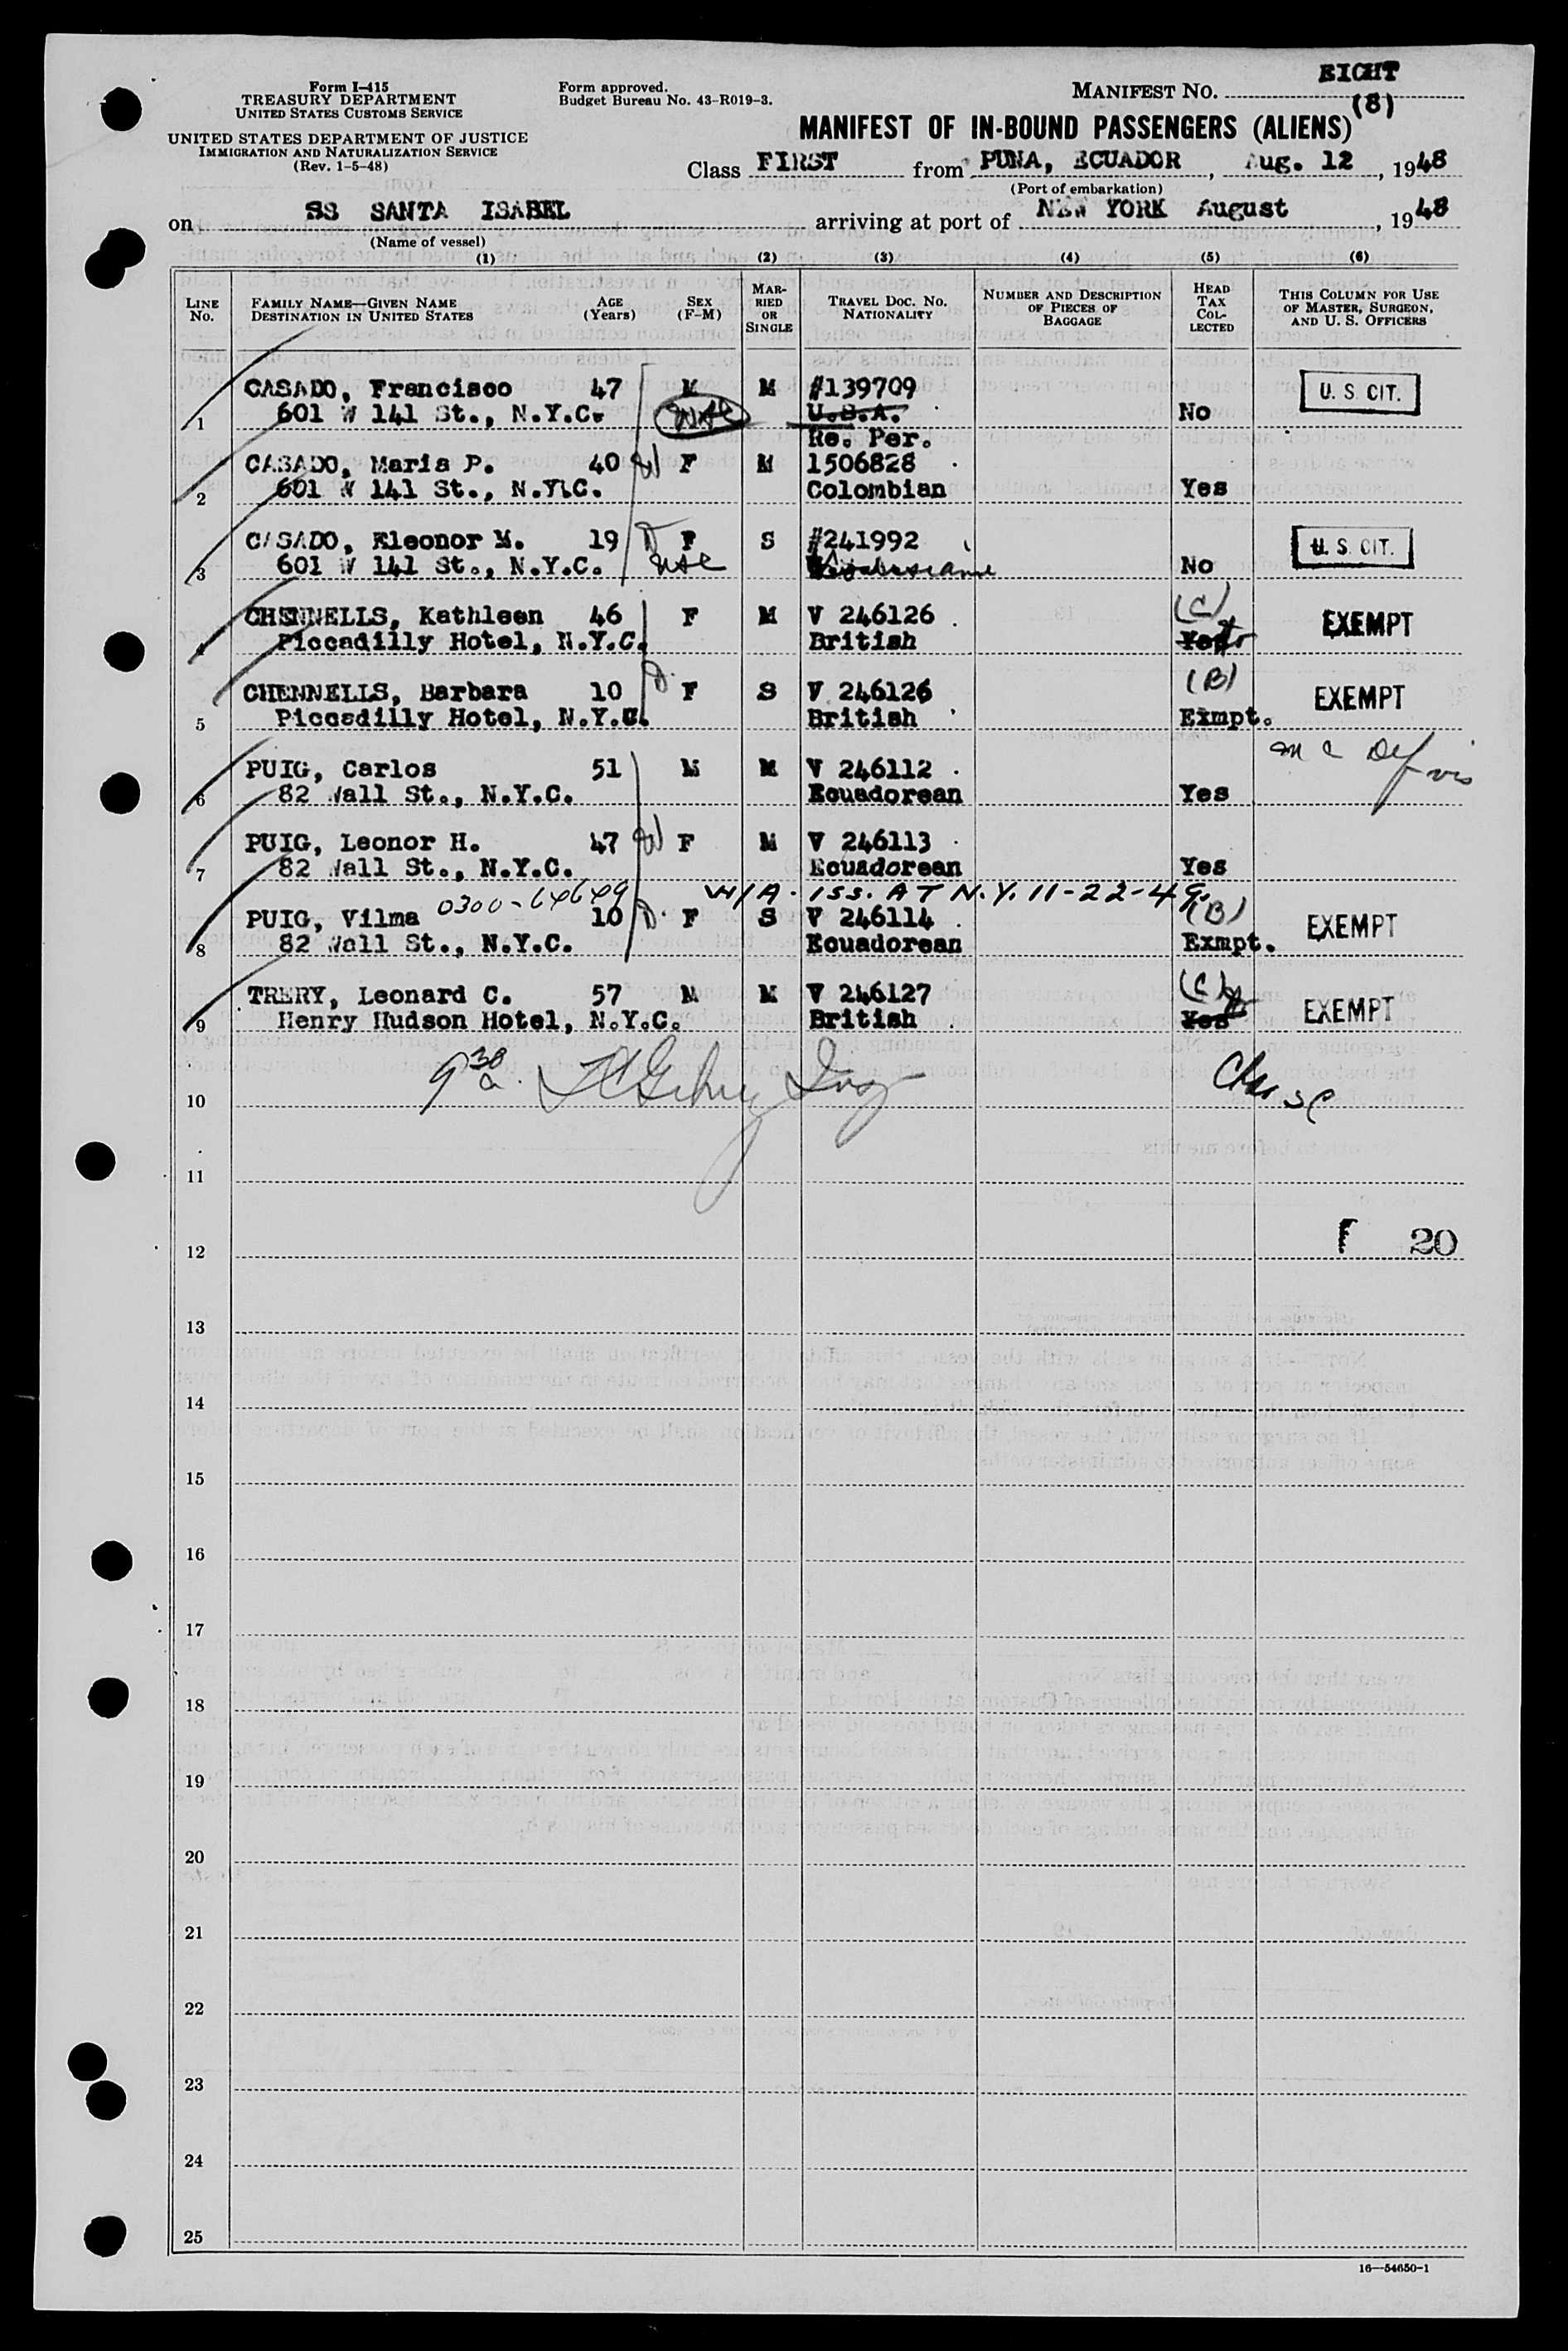 Form I-415
TREASURY DEPARTMENT
UNITED STATES CUSTOMS SERVICE
UNITED STATES DEPARTMENT OF JUSTICE
IMMIGRATION AND NATURALIZATION SERVICE
(Rev. 1-5-48)
Form approved.
Budget Bureau No. 43-R019-3.
MANIFEST NO. EIGHT
(8)
MANIFEST OF IN-BOUND PASSENGERS (ALIENS)
Class FIRST from PUNA, ECUADOR, Aug. 12, 1948
(Port of embarkation)
on SS SANTA ISABEL arriving at port of NEW YORK August, 1948
(Name of vessel)
(1) (2) (3) (4) (5) (6)
LINE No. FAMILY NAME—GIVEN NAME DESTINATION IN UNITED STATES AGE (Years) SEX (F-M) MARRIED OR SINGLE TRAVEL DOC. NO. NATIONALITY NUMBER AND DESCRIPTION OF PIECES OF BAGGAGE HEAD TAX COLLECTED THIS COLUMN FOR USE OF MASTER, SURGEON, AND U. S. OFFICERS
CASADO, Francisco 47 M M #139709 U. S. CIT.
1 601 W 141 St., N.Y.C. USC U.S.A. No
Re. Per.
CASADO, Maria P. 40 W F M 1506828
2 601 W 141 St., N.Y.C. Colombian Yes
CASADO, Eleonor M. 19 D F S #241992 U. S. CIT.
3 601 W 141 St., N.Y.C. USC No
CHENNELLS, Kathleen 46 F M V 246126 (C) EXEMPT
4 Piccadilly Hotel, N.Y.C. British Yes
CHENNELLS, Barbara 10 D F S V 246126 (B) EXEMPT
5 Piccadilly Hotel, N.Y.C. British Exmpt.
PUIG, Carlos 51 M M V 246112 Def vis
6 82 Wall St., N.Y.C. Ecuadorean Yes
PUIG, Leonor H. 47 W F M V 246113
7 82 Wall St., N.Y.C. Ecuadorean Yes
0300-64649 W/A. ISS. AT N.Y. 11-22-49
PUIG, Vilma 10 D. F S V 246114 (B) EXEMPT
8 82 Wall St., N.Y.C. Ecuadorean Exmpt.
TRERY, Leonard C. 57 M M V 246127 (C) EXEMPT
9 Henry Hudson Hotel, N.Y.C. British Yes
9 30 a.
10
11
12 20
13
14
15
16
17
18
19
20
21
22
23
24
25
16—54650-1